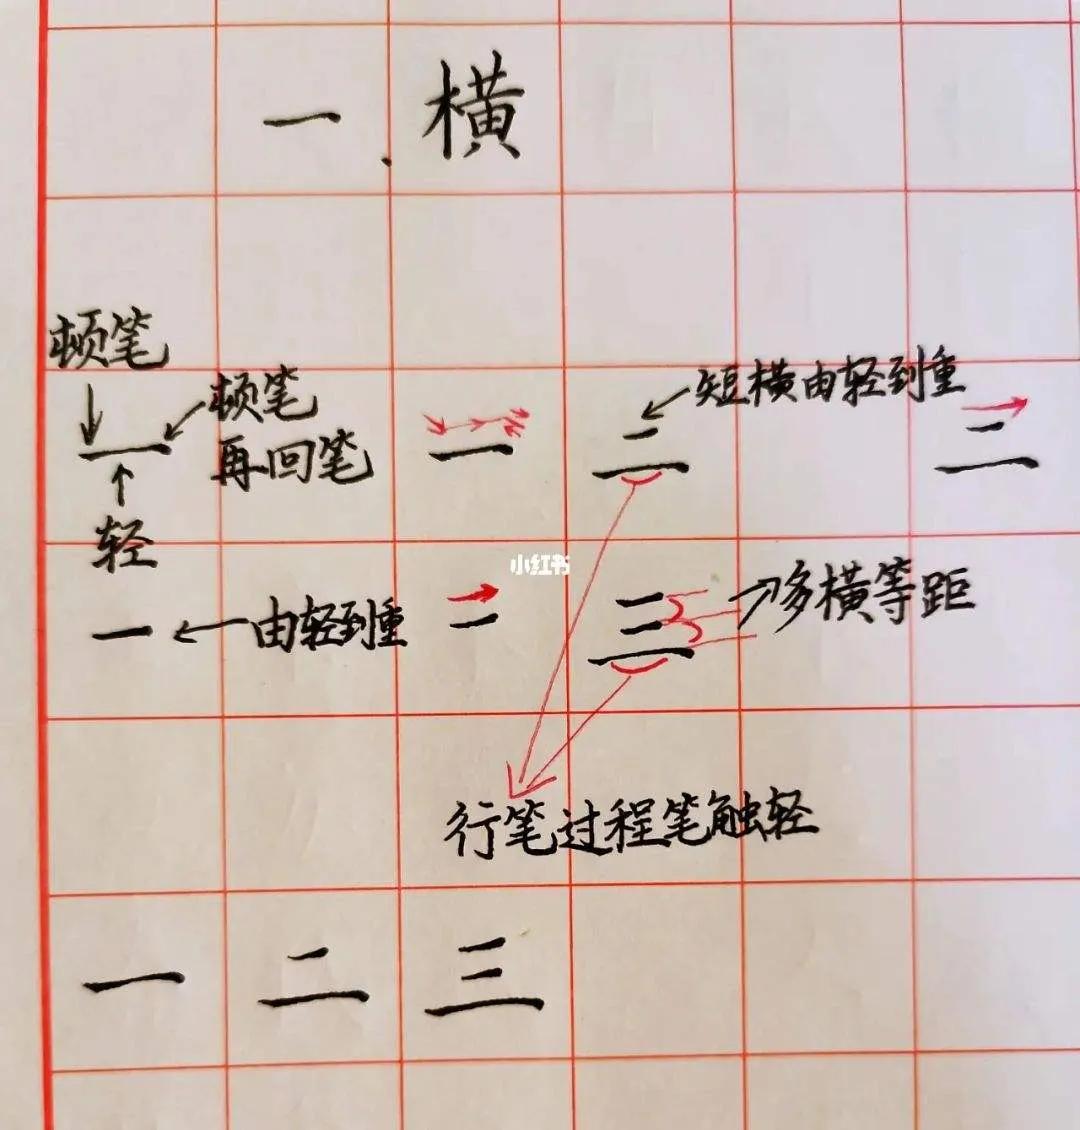 一、横
顿笔
顿笔
再回笔
轻
一
一
二
短横由轻到重
二
一
由轻到重
二
三
多横等距
小红书
行笔过程笔触轻
一 二 三